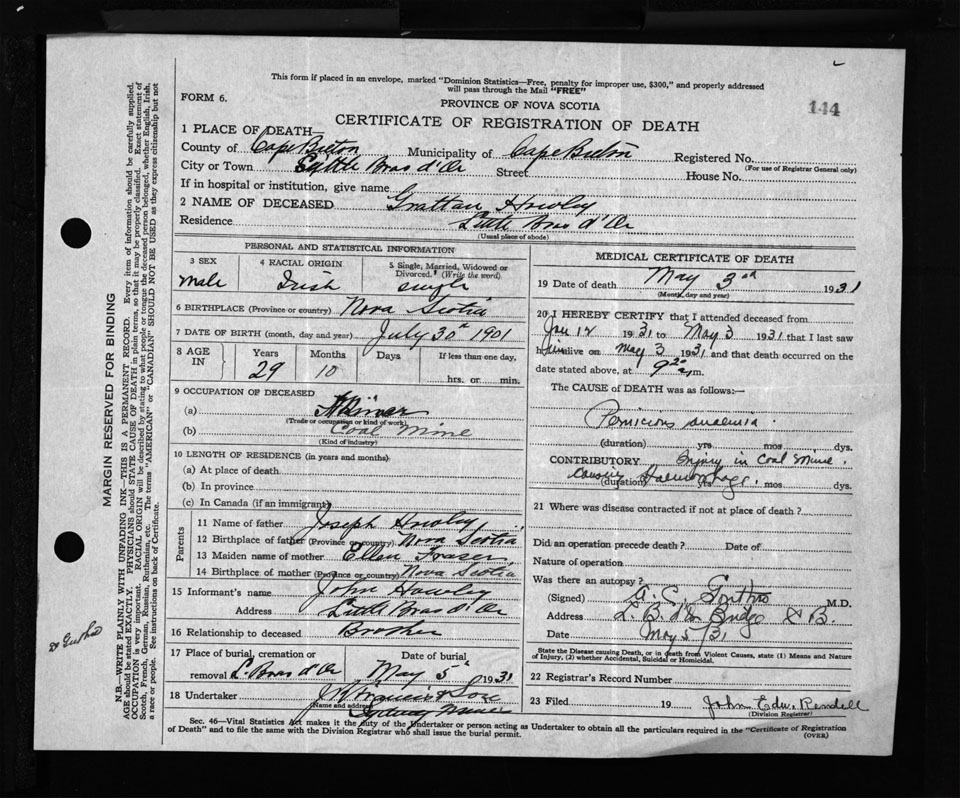 This form if placed in an envelope, marked "Dominion Statistics—Free, penalty for improper use, $300," and properly addressed
will pass through the Mail "FREE"
FORM 6.
PROVINCE OF NOVA SCOTIA
144
CERTIFICATE OF REGISTRATION OF DEATH
1 PLACE OF DEATH—
County of Cape Breton Municipality of Cape Breton Registered No.
(For use of Registrar General only)
City or Town Little Bras d'Or Street House No.
If in hospital or institution, give name
2 NAME OF DECEASED Grattan Howley
Residence Little Bras d'Or
(Usual place of abode)
PERSONAL AND STATISTICAL INFORMATION
3 SEX 4 RACIAL ORIGIN 5 Single, Married, Widowed or
Divorced. (Write the word).
male Irish single
6 BIRTHPLACE (Province or country) Nova Scotia
7 DATE OF BIRTH (month, day and year) July 30th 1901
8 AGE IN Years Months Days If less than one day,
29 10 hrs. or min.
9 OCCUPATION OF DECEASED
(a) Miner
(Trade or occupation or kind of work)
(b) Coal Mine
(Kind of industry)
10 LENGTH OF RESIDENCE (in years and months):
(a) At place of death
(b) In province
(c) In Canada (if an immigrant)
Parents
11 Name of father Joseph Howley
12 Birthplace of father (Province or country) Nova Scotia
13 Maiden name of mother Ellen Fraser
14 Birthplace of mother (Province or country) Nova Scotia
15 Informant's name John Howley
Address Little Bras d'Or
16 Relationship to deceased Brother
17 Place of burial, cremation or Date of burial
removal L. Bras d'Or May 5th 1931
18 Undertaker
(Name and address) Sydney Mines
MEDICAL CERTIFICATE OF DEATH
19 Date of death May 3rd 1931
(Month, day and year)
20 I HEREBY CERTIFY that I attended deceased from
1931 to May 3 1931 that I last saw
him alive on May 3 1931 and that death occurred on the
date stated above, at 9 20 m.
The CAUSE of DEATH was as follows:—
Pernicious anaemia.
(duration) yrs mos. dys.
CONTRIBUTORY Injury in Coal Mine.
causing Haemorrhage.
(duration) yrs. mos. dys.
21 Where was disease contracted if not at place of death?
Did an operation precede death? Date of
Nature of operation
Was there an autopsy?
(Signed) A. C. M.D.
Address L. B. d'Or Bridge C B.
Date May 5/31
State the Disease causing Death, or in death from Violent Causes, state (1) Means and Nature
of Injury, (2) whether Accidental, Suicidal or Homicidal.
22 Registrar's Record Number
23 Filed 19 John Edw. Rendell
(Division Registrar)
Sec. 46—Vital Statistics Act makes it the duty of the Undertaker or person acting as Undertaker to obtain all the particulars required in the "Certificate of Registration
of Death" and to file the same with the Division Registrar who shall issue the burial permit. (OVER)
MARGIN RESERVED FOR BINDING
N.B.—WRITE PLAINLY WITH UNFADING INK—THIS IS A PERMANENT RECORD. Every item of information should be carefully supplied.
AGE should be stated EXACTLY. PHYSICIANS should STATE CAUSE OF DEATH in plain terms, so that it may be properly classified. Exact statement of
OCCUPATION is very important. RACIAL ORIGIN will be described by stating to what people or tongue the deceased person belonged, whether English, Irish,
Scotch, French, German, Russian, Ruthenian, etc. The terms "AMERICAN" or "CANADIAN" SHOULD NOT BE USED as they express citizenship but not
a race or people. See instructions on back of Certificate.